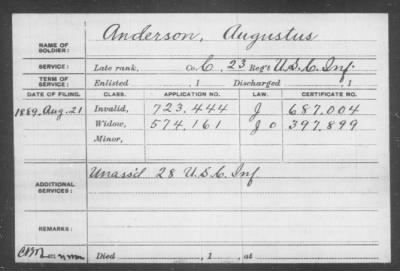 Anderson, Augustus
NAME OF SOLDIER:
SERVICE: Late rank, Co. C, 23 Reg't U.S.C. Inf.
TERM OF SERVICE: Enlisted , 1 Discharged , 1
DATE OF FILING. CLASS. APPLICATION NO. LAW. CERTIFICATE NO.
1889, Aug. 21 Invalid, 723,444 J 687,004
Widow, 574,161 J O 397,899
Minor,
ADDITIONAL SERVICES: Unass'd 28 U.S.C. Inf
REMARKS:
Died , 1 , at